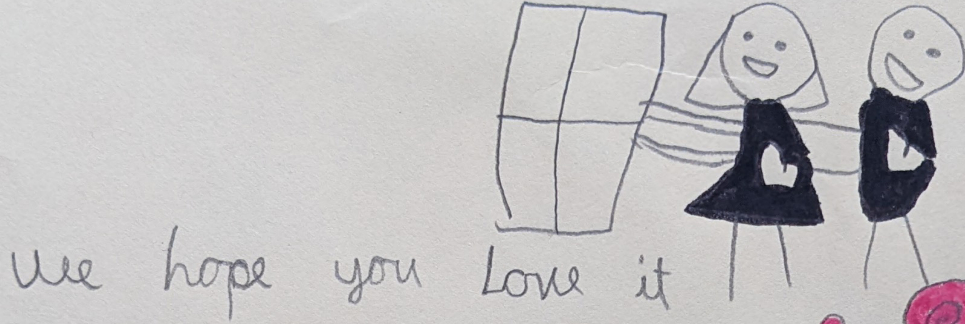 we hope you Love it